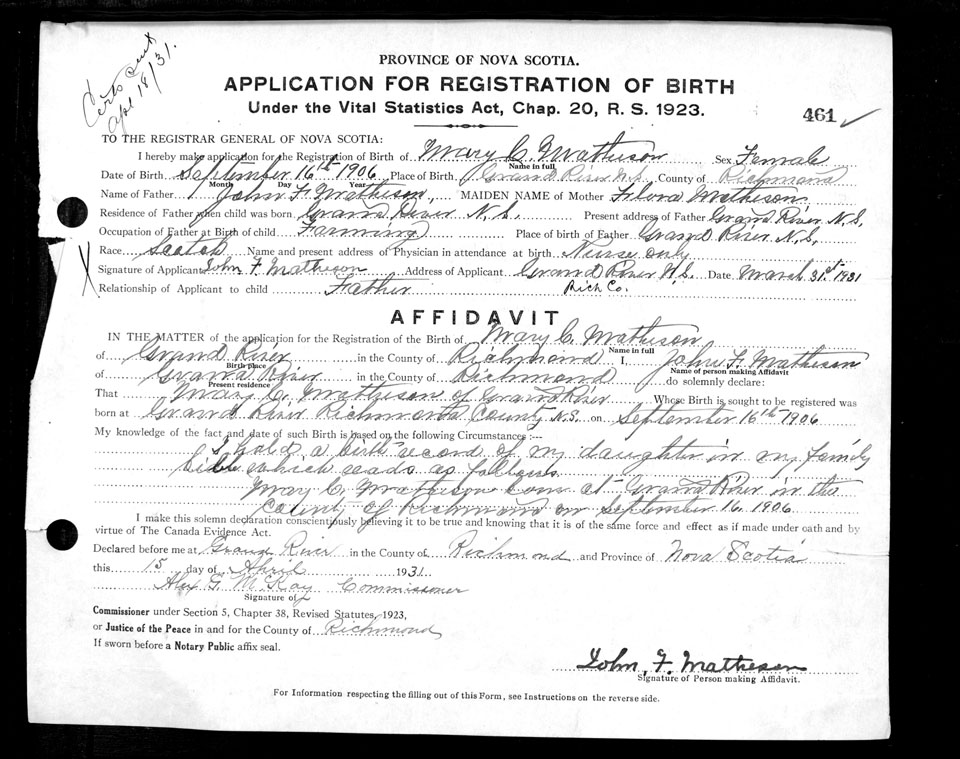 Certs sent
Apl 18/31.
PROVINCE OF NOVA SCOTIA.
APPLICATION FOR REGISTRATION OF BIRTH
Under the Vital Statistics Act, Chap. 20, R. S. 1923.
461
TO THE REGISTRAR GENERAL OF NOVA SCOTIA:
I hereby make application for the Registration of Birth of Mary C. Matheson Sex Female
Name in full
Date of Birth September 16th 1906 Place of Birth Grand River N.S. County of Richmond
Month Day Year
Name of Father John F. Matheson, MAIDEN NAME of Mother Flora Matheson
Residence of Father when child was born Grand River N.S. Present address of Father Grand River N.S.
Occupation of Father at Birth of child Farming Place of birth of Father Grand River N.S.
Race Scotch Name and present address of Physician in attendance at birth Nurse only
Signature of Applicant John F. Matheson Address of Applicant Grand River N.S. Date March 31st 1931
Relationship of Applicant to child Father Rich Co.
AFFIDAVIT
IN THE MATTER of the application for the Registration of the Birth of Mary C. Matheson
Name in full
of Grand River in the County of Richmond I, John F. Matheson
Birth place Name of person making Affidavit
of Grand River in the County of Richmond do solemnly declare:
Present residence
That Mary C. Matheson of Grand River Whose Birth is sought to be registered was
born at Grand River Richmond County N.S. on September 16th 1906
My knowledge of the fact and date of such Birth is based on the following Circumstances :--
I hold a birth record of my daughter in my family
bible which reads as follows
Mary C. Matheson born at Grand River in the
County of Richmond on September 16. 1906
I make this solemn declaration conscientiously believing it to be true and knowing that it is of the same force and effect as if made under oath and by
virtue of The Canada Evidence Act.
Declared before me at Grand River in the County of Richmond and Province of Nova Scotia
this 15 day of April 1931
Alex G. McKay Commissioner
Signature of
Commissioner under Section 5, Chapter 38, Revised Statutes, 1923,
or Justice of the Peace in and for the County of Richmond
If sworn before a Notary Public affix seal.
John, F. Matheson
Signature of Person making Affidavit.
For Information respecting the filling out of this Form, see Instructions on the reverse side.